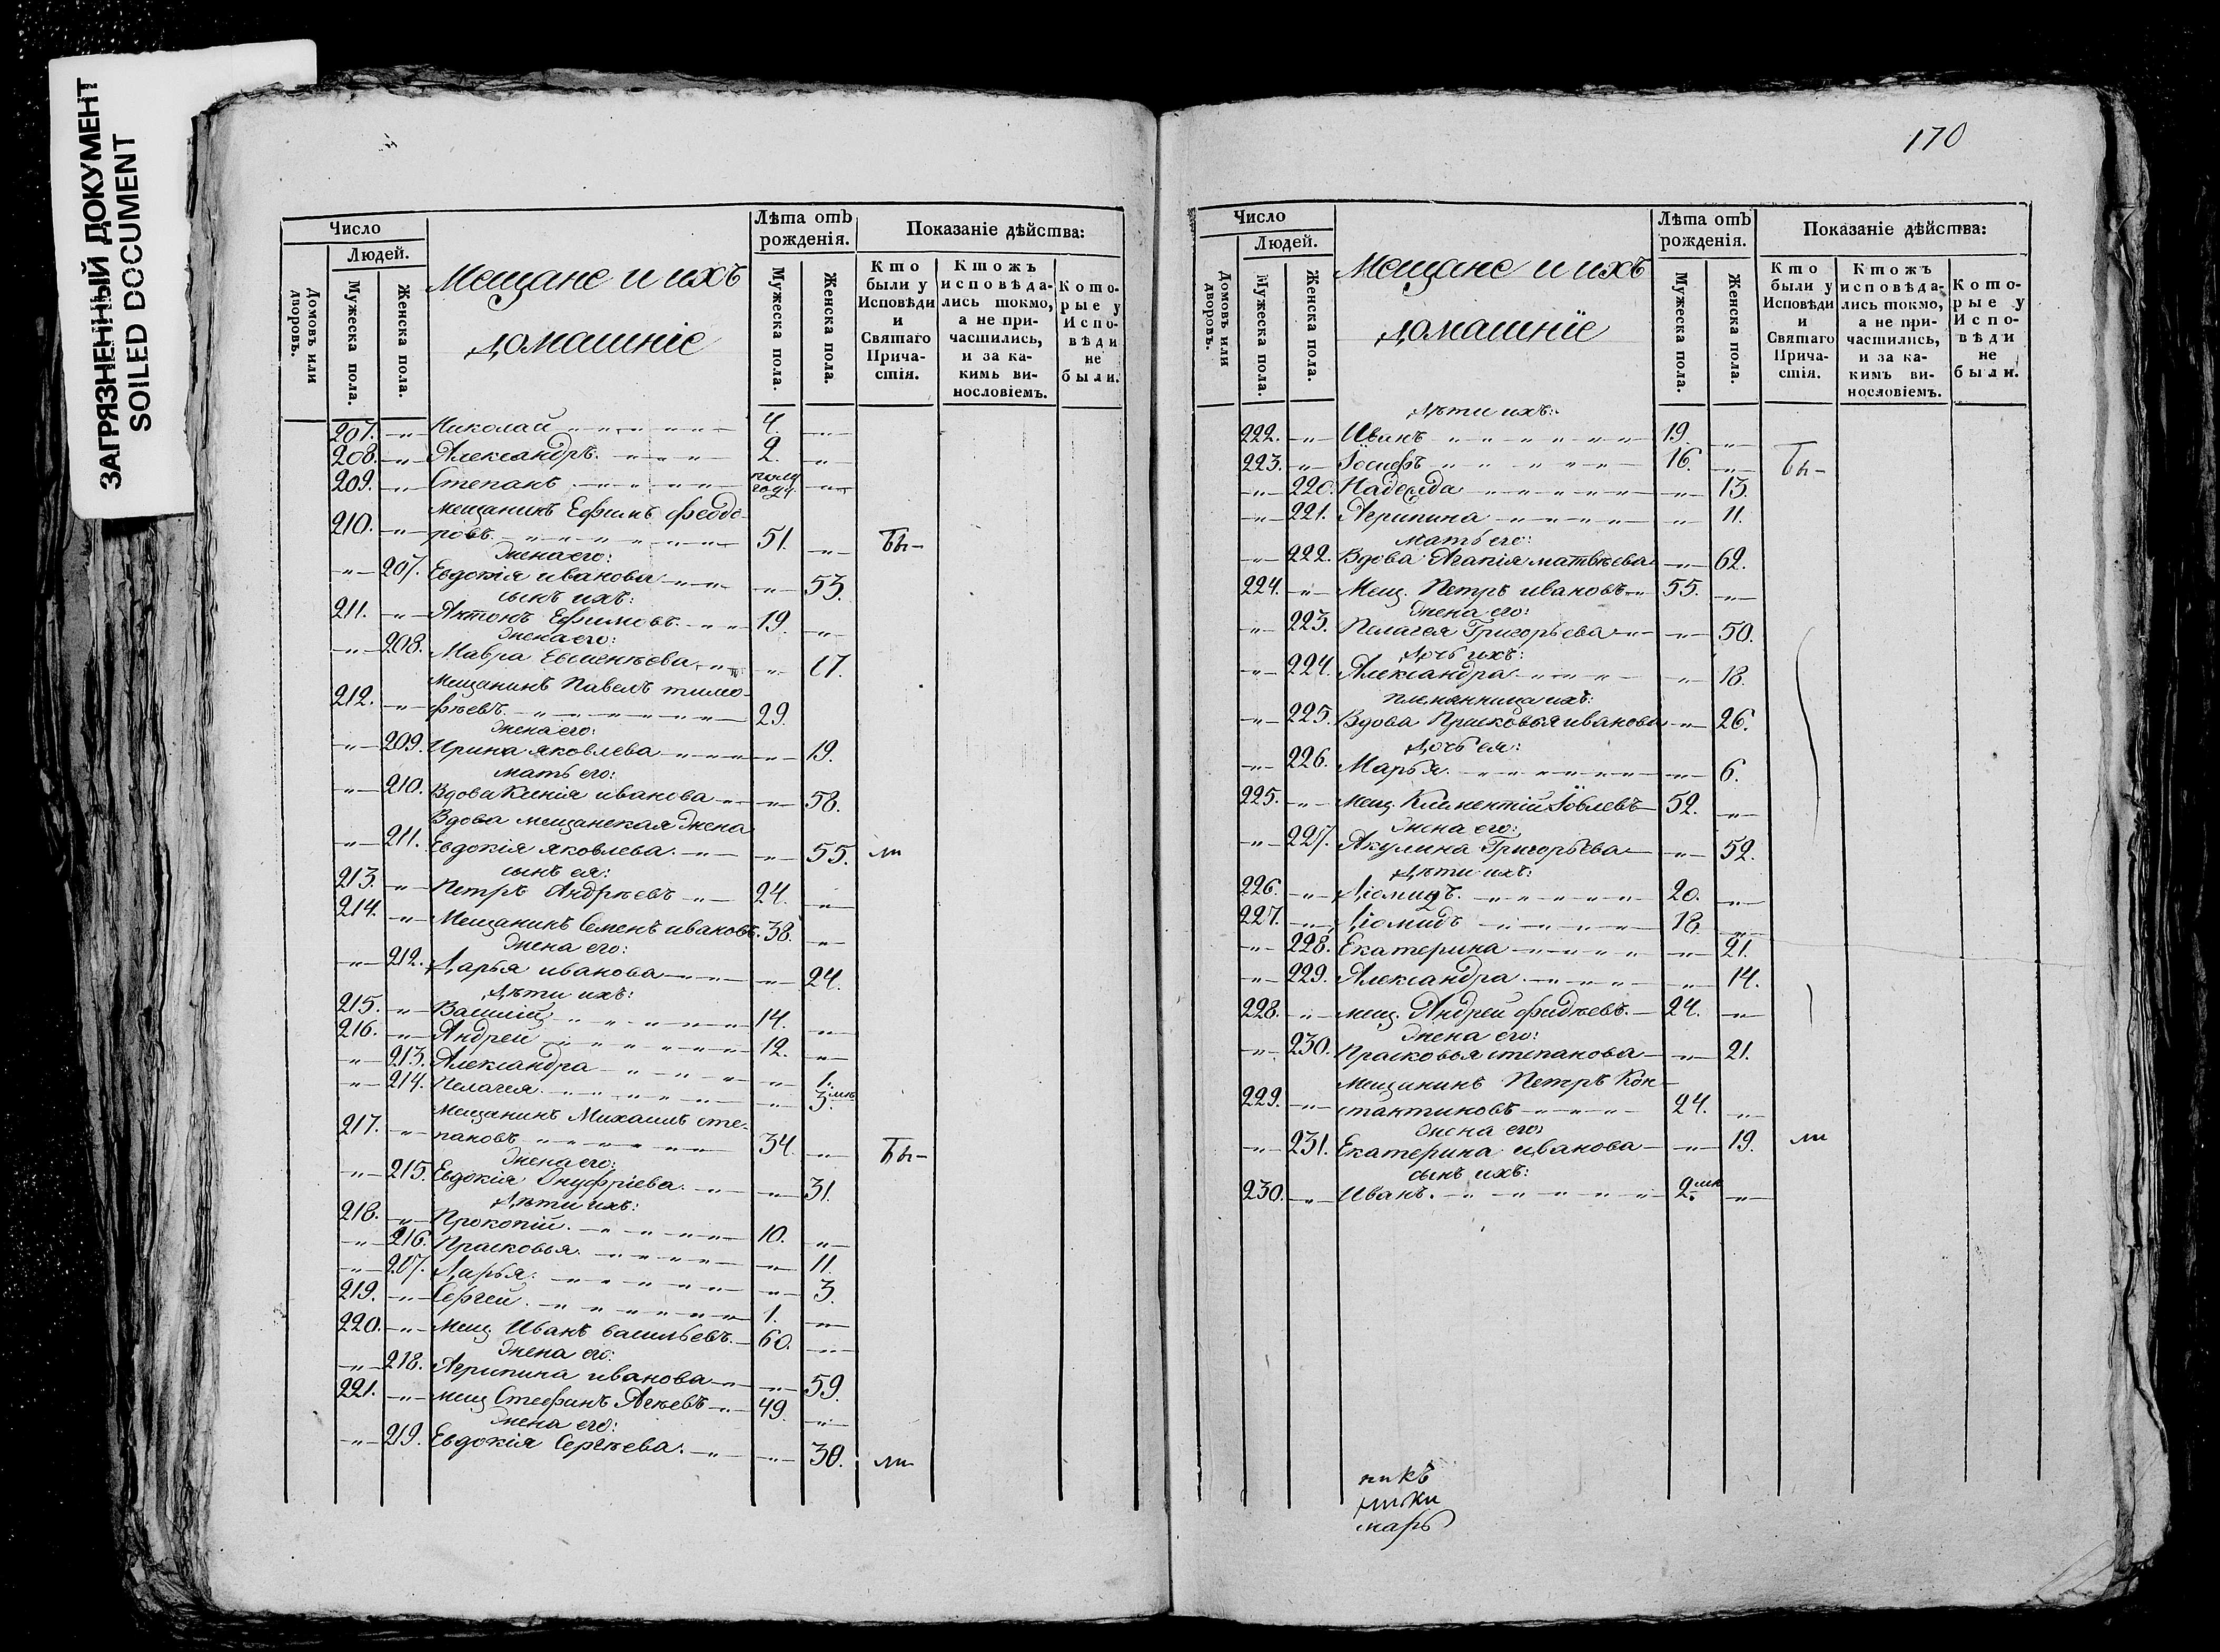 ЗАГРЯЗНЕННЫЙ ДОКУМЕНТ
SOILED DOCUMENT
Число
Людей.
Домовъ или дворовъ.
Мужеска пола.
Женска пола.
Мещане и ихъ
домашніе
Лѣта отъ рожденія.
Мужеска пола.
Женска пола.
Показаніе дѣйства:
Кто были у Исповѣди и Святаго Прича-стія.
Ктожъ исповѣда-лись токмо, а не при-частились, и за ка-кимъ ви-нословіемъ.
Кото-рые у Испо-вѣди не были.
207. -„- Николай 4. -„-
208. -„- Александръ 2. -„-
209. -„- Степанъ полу году. -„-
Мещанинъ Ефимъ Феодо-
210. -„- ровъ 51. -„- Бы-
Жена его:
-„- 207. Евдокія иванова -„- 53.
сынъ ихъ:
211. -„- Антонъ Ефимовъ 19. -„-
Жена его:
-„- 208. Мавра Евменѣева -„- 17.
Мещанинъ Павелъ тимо-
212. -„- фѣевъ 29.
Жена его:
-„- 209. Ирина яковлева -„- 19.
мать его:
-„- 210. Вдова Ксенія иванова -„- 58.
Вдова мещанская Жена
-„- 211. Евдокія яковлева -„- 55. ли
сынъ ея:
213. -„- Петръ Андрѣевъ 24. -„-
214. -„- Мещанинъ Семенъ ивановъ. 38. -„-
Жена его:
-„- 212. Дарья иванова -„- 24.
Дѣти ихъ:
215. -„- Василій 14. -„-
216. -„- Андрей 12. -„-
-„- 213. Александра -„- 1.
-„- 214. Пелагея -„- 3 мѣ.
Мещанинъ Михаилъ сте-
217. -„- пановъ 34. -„- Бы-
Жена его:
-„- 215. Евдокія Онуфріева -„- 31.
Дѣти ихъ:
218. -„- Прокопій 10. -„-
-„- 216. Прасковья -„- 11.
-„- 207. Дарья -„- 3.
219. -„- Сергей 1. -„-
220. -„- Мещ. Иванъ васильевъ 60. -„-
Жена его:
-„- 218. Агрипина иванова -„- 59.
221. -„- мещ Стефанъ Агѣевъ 49. -„-
Жена его:
-„- 219. Евдокія Сергѣева -„- 30. ли
170
Число
Людей.
Домовъ или дворовъ.
Мужеска пола.
Женска пола.
Мещане и ихъ
домашніе
Лѣта отъ рожденія.
Мужеска пола.
Женска пола.
Показаніе дѣйства:
Кто были у Исповѣди и Святаго Прича-стія.
Ктожъ исповѣда-лись токмо, а не при-частились, и за ка-кимъ ви-нословіемъ.
Кото-рые у Испо-вѣди не были.
Дѣти ихъ:
222. -„- Иванъ 19. -„-
223. -„- Іосифъ 16. -„- Бы-
-„- 220. Надежда -„- 13.
-„- 221. Агрипина -„- 11.
Мать его:
-„- 222. Вдова Агапія матвѣева -„- 62.
224. -„- Мещ. Петръ ивановъ 55. -„-
Жена его:
-„- 223. Пелагея Григорьева -„- 50.
Дочь ихъ:
-„- 224. Александра -„- 18.
племянница ихъ:
-„- 225. Вдова Прасковья иванова -„- 26.
Дочь ея:
-„- 226. Марья -„- 6.
225. -„- мещ. Климентій Іовлевъ 52. -„-
Жена его:
-„- 227. Акулина Григорьева -„- 52.
Дѣти ихъ:
226. -„- Діомидъ 20. -„-
227. -„- Діомидъ 18. -„-
-„- 228. Екатерина -„- 21.
-„- 229. Александра -„- 14.
228. -„- мещ. Андрей фадѣевъ. 24. -„-
Жена его:
-„- 230. Прасковья степанова -„- 21.
Мещанинъ Петръ Кон-
229. -„- стантиновъ 24. -„-
Жена его:
-„- 231. Екатерина иванова -„- 19. ли
сынъ ихъ:
230. -„- Иванъ. 2 мѣ. -„-